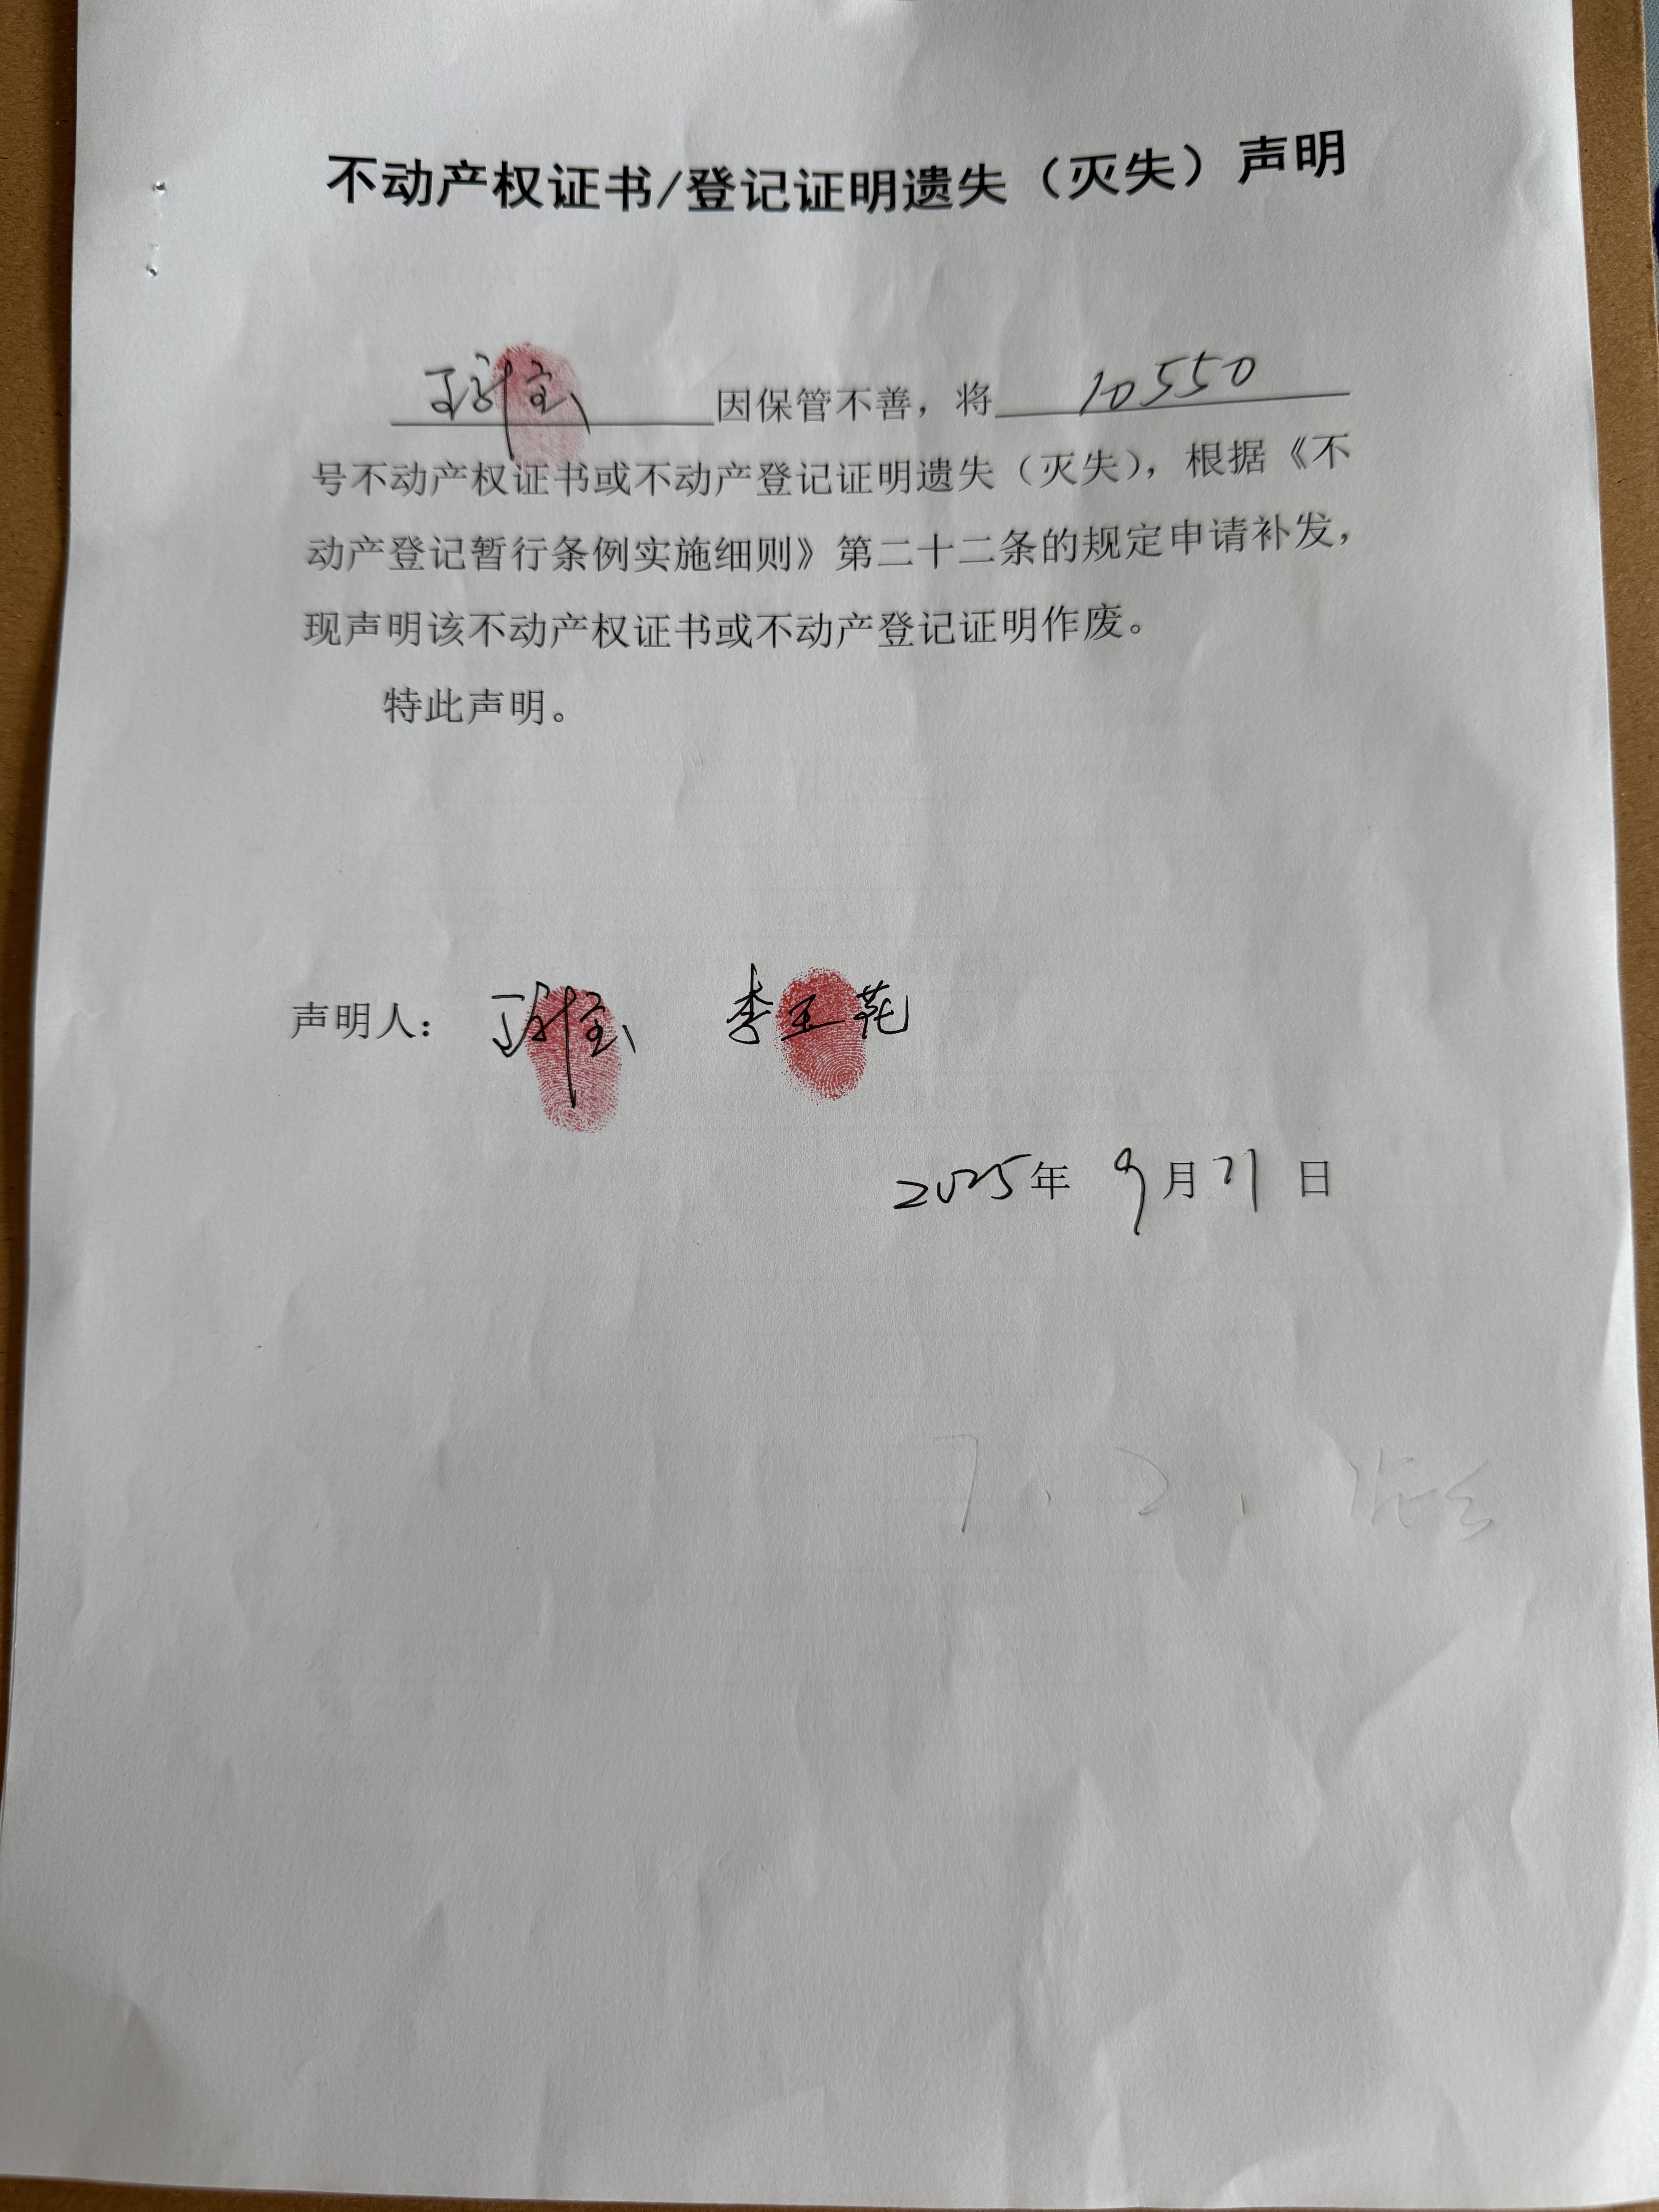 不动产权证书/登记证明遗失（灭失）声明
因保管不善，将 10550
号不动产权证书或不动产登记证明遗失（灭失），根据《不
动产登记暂行条例实施细则》第二十二条的规定申请补发，
现声明该不动产权证书或不动产登记证明作废。
特此声明。
声明人： 李玉花
2025年 9月21日